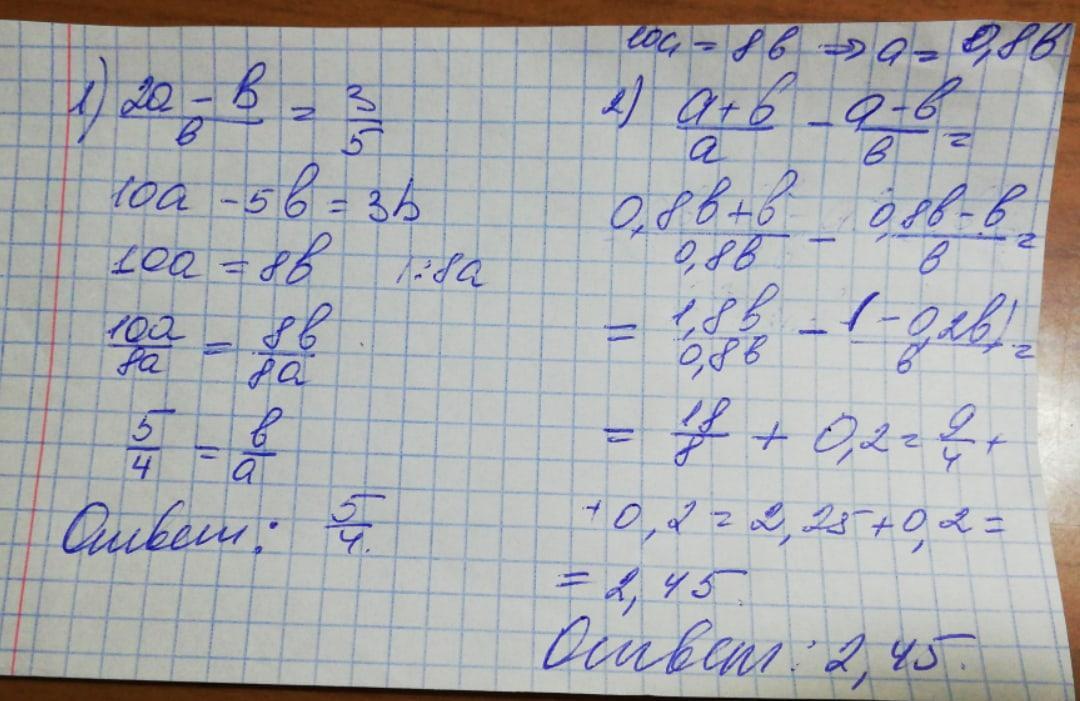 1) (2a - b)/b = 3/5
10a - 5b = 3b
10a = 8b |:8a
10a/8a = 8b/8a
5/4 = b/a
Ответ: 5/4.
10a = 8b ⇒ a = 0,8b
2) (a+b)/a - (a-b)/b =
(0,8b+b)/0,8b - (0,8b-b)/b =
= 1,8b/0,8b - (-0,2b)/b =
= 18/8 + 0,2 = 9/4 +
+0,2 = 2,25+0,2 =
= 2,45
Ответ: 2,45.